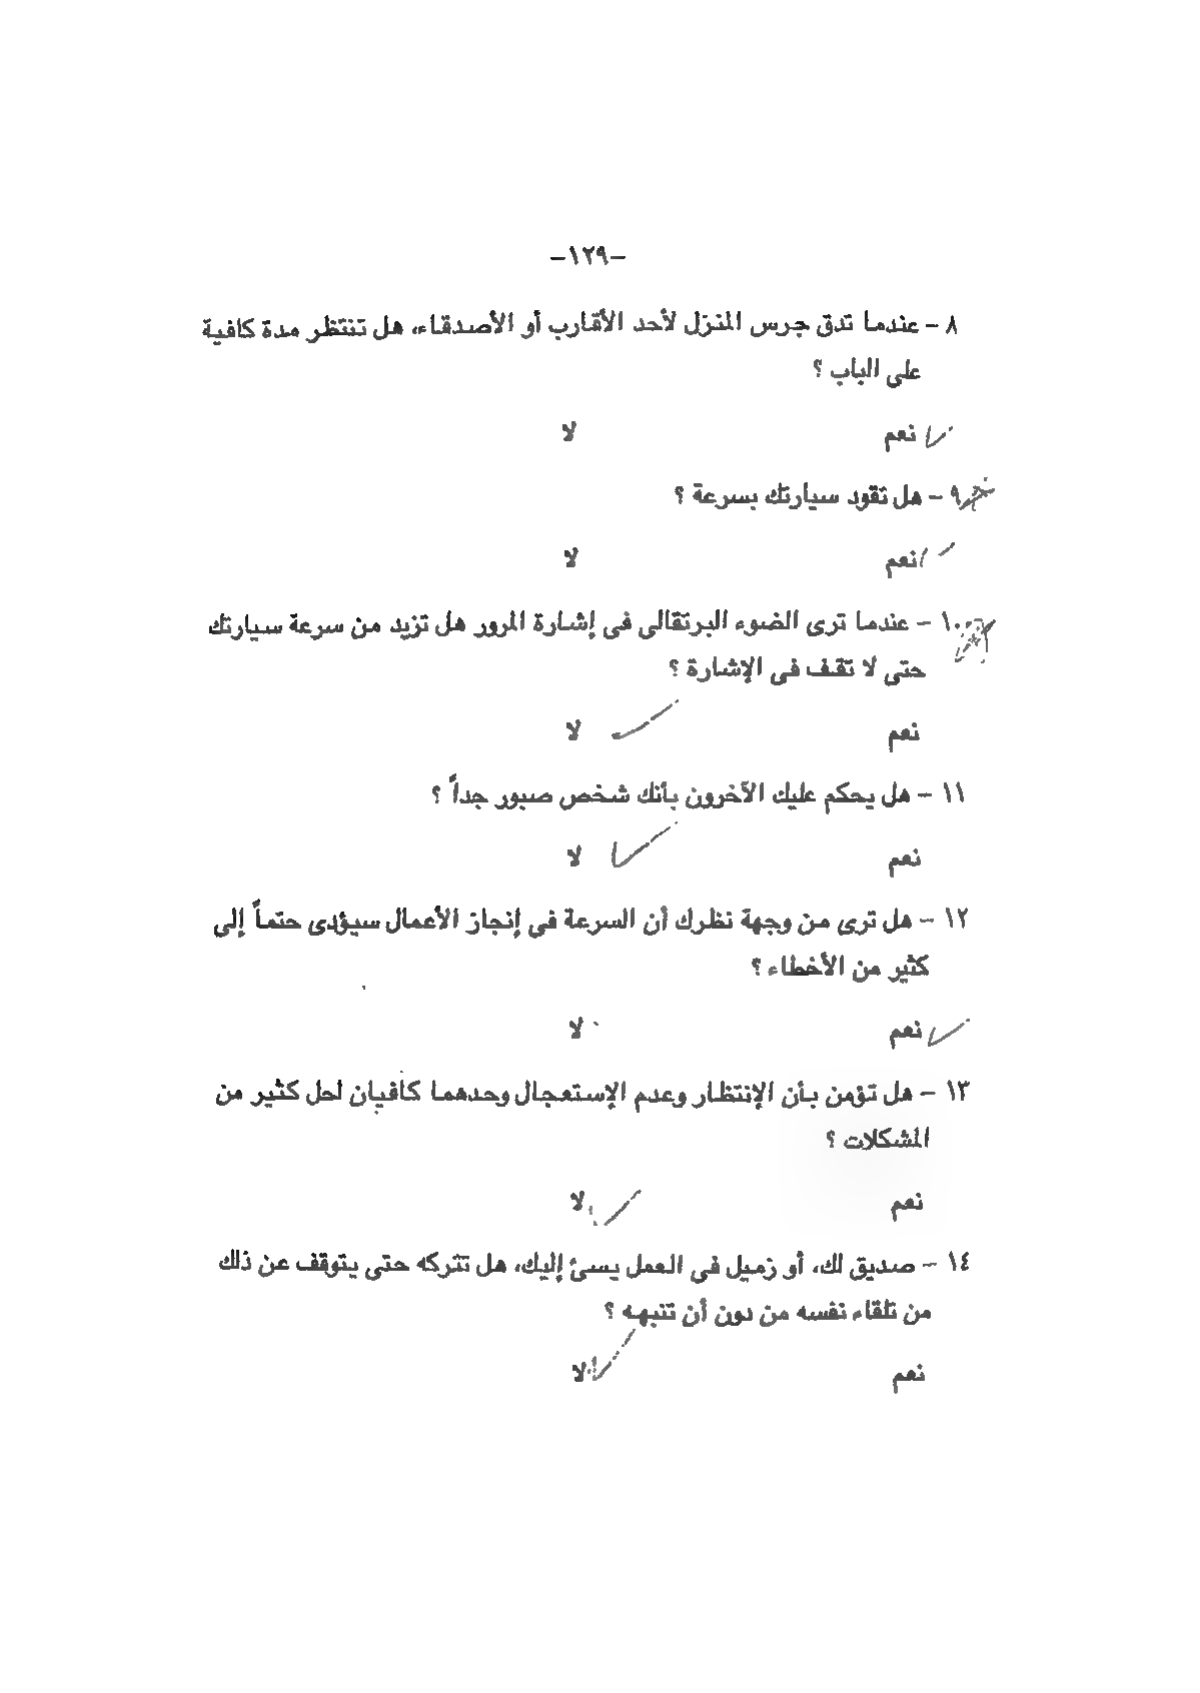 -١٢٩-
٨ - عندما تدق جرس المنزل لأحد الأقارب أو الأصدقاء، هل تنتظر مدة كافية
على الباب ؟
نعم لا
٩ - هل تقود سيارتك بسرعة ؟
نعم لا
١٠ - عندما ترى الضوء البرتقالى فى إشارة المرور هل تزيد من سرعة سيارتك
حتى لا تقف فى الإشارة ؟
نعم لا
١١ - هل يحكم عليك الآخرون بأنك شخص صبور جداً ؟
نعم لا
١٢ - هل ترى من وجهة نظرك أن السرعة في إنجاز الأعمال سيؤدى حتماً إلى
كثير من الأخطاء ؟
نعم لا
١٣ - هل تؤمن بأن الإنتظار وعدم الإستعجال وحدهما كافيان لحل كثير من
المشكلات ؟
نعم لا
١٤ - صديق لك، أو زميل في العمل يسئ إليك، هل تتركه حتى يتوقف عن ذلك
من تلقاء نفسه من دون أن تنبهه ؟
نعم لا